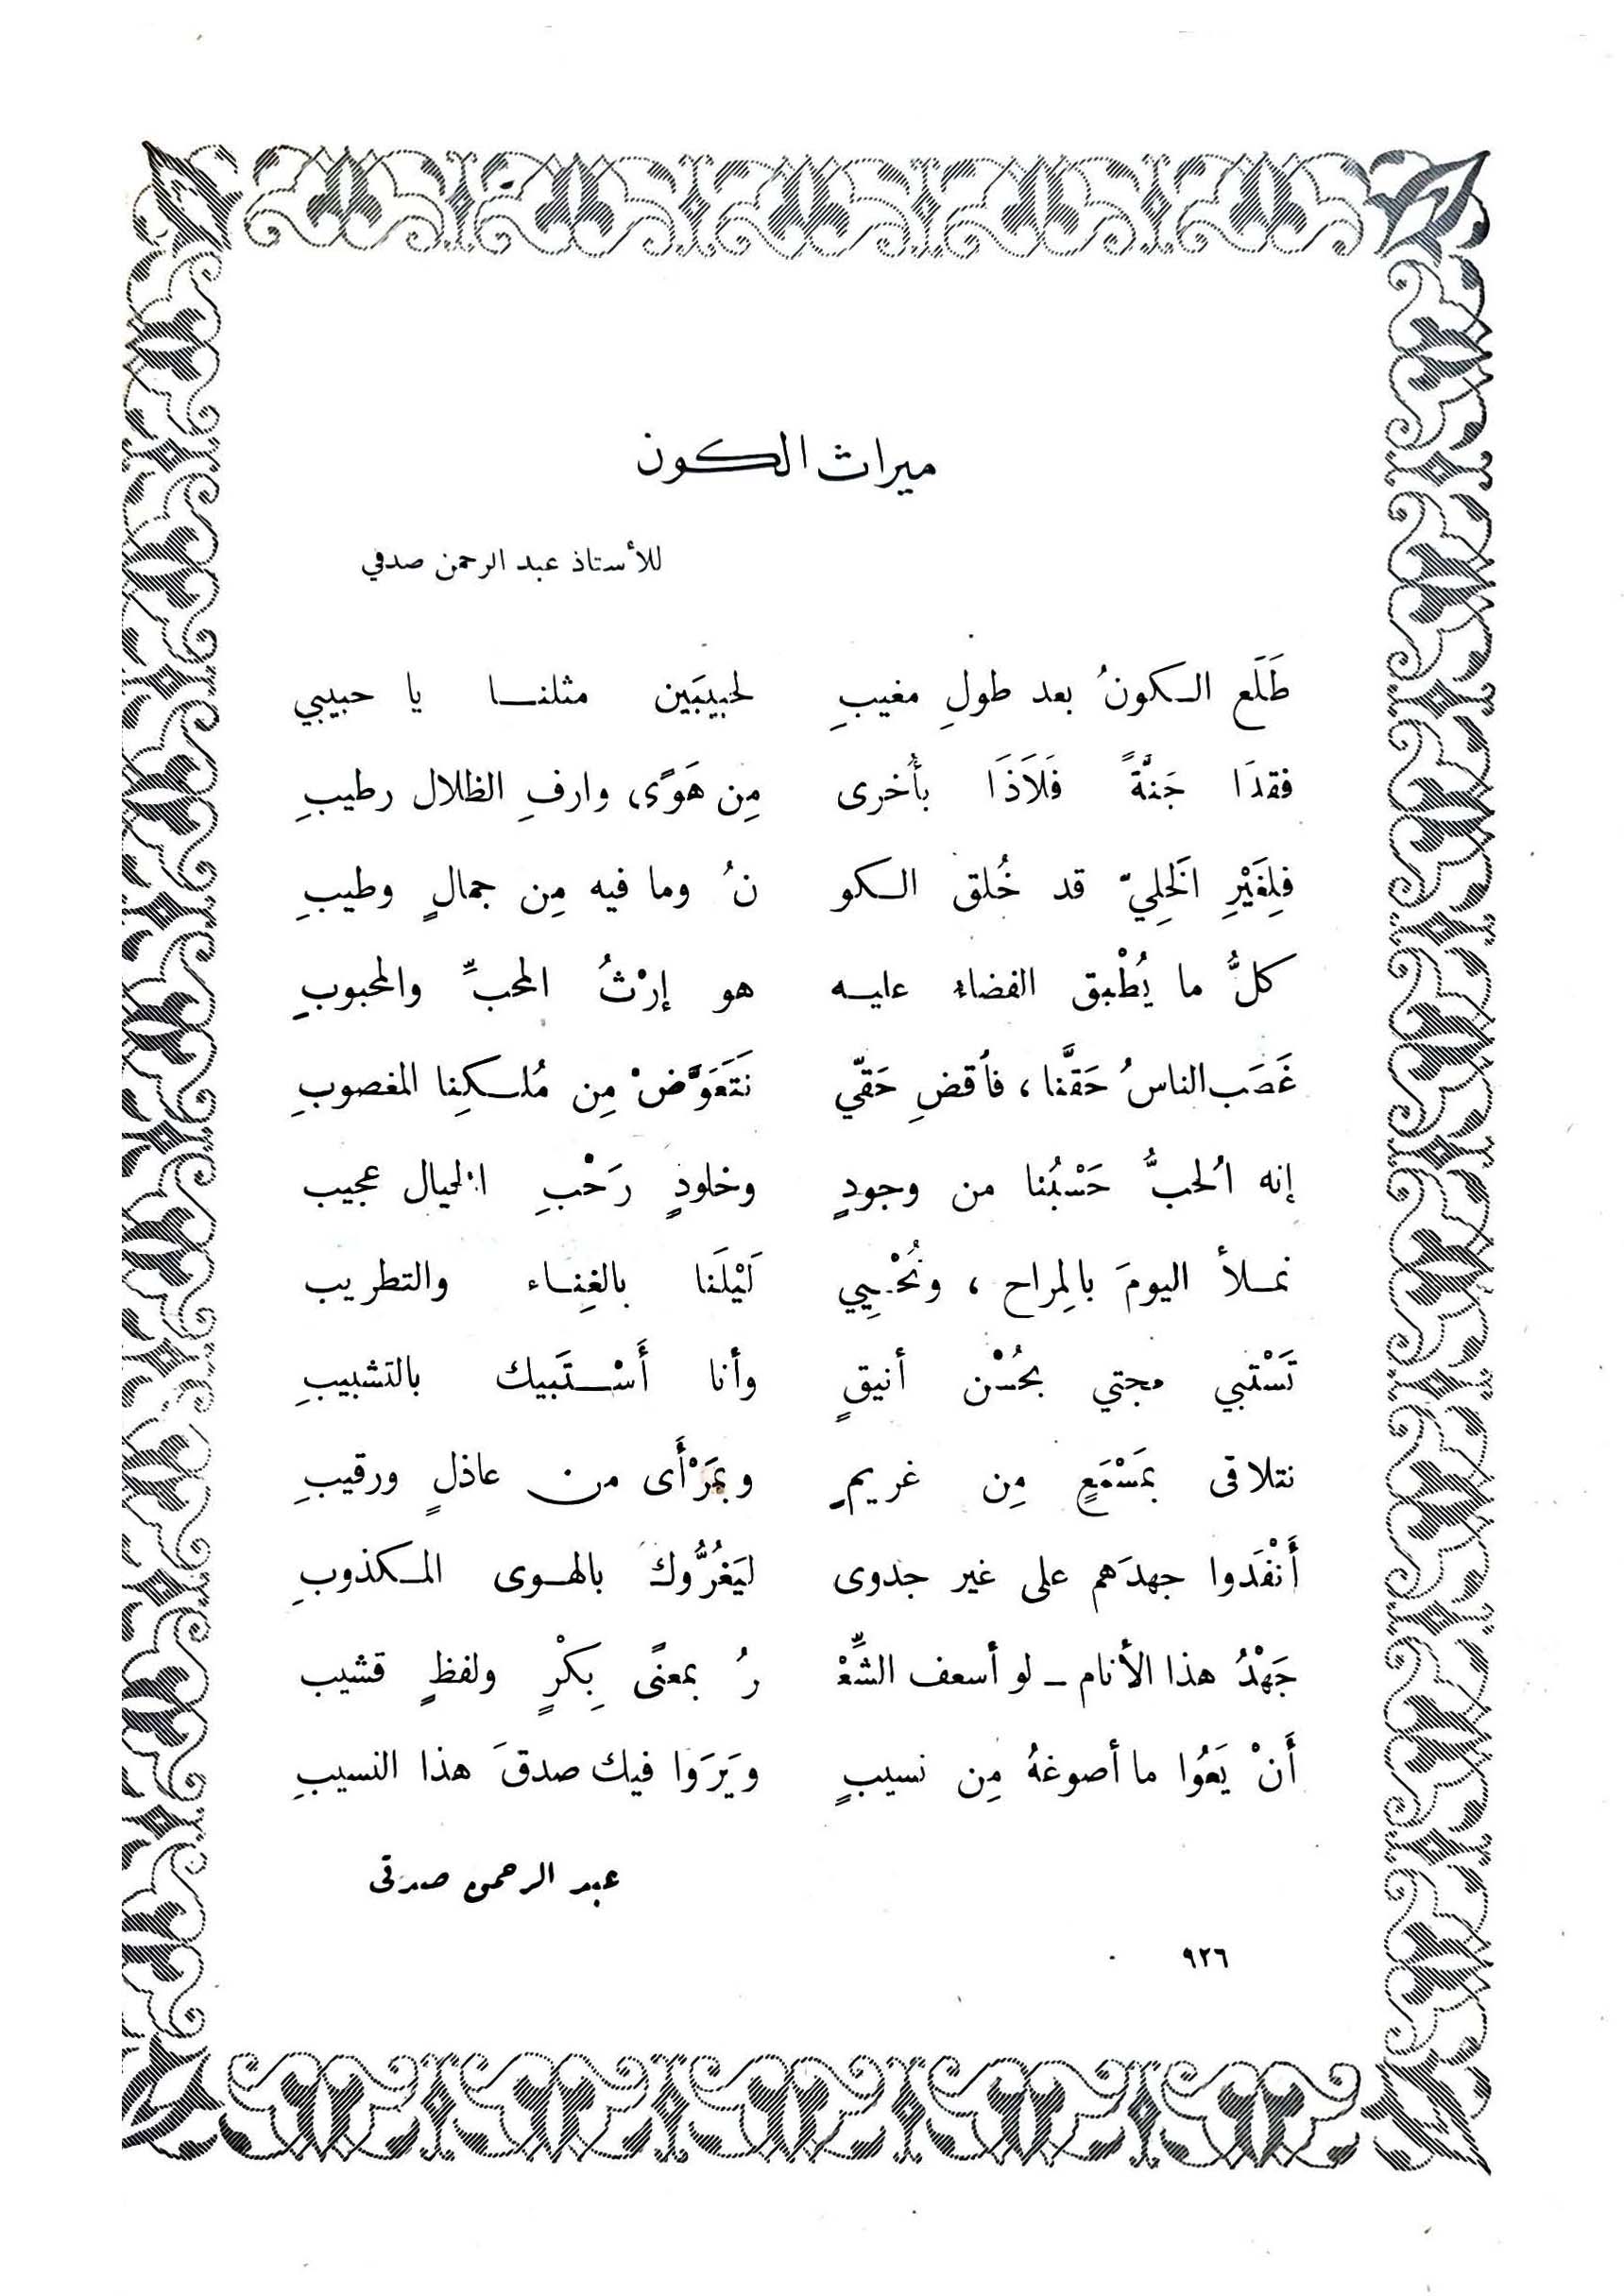 ميراث الكون
للأستاذ عبد الرحمن صدقي
طَلَع الكونُ بعد طولِ مغيبِ لحبيبَين مثلنا يا حبيبي
فقدَا جَنَّةً فَلَاذَا بأُخرى مِن هَوًى وارفِ الظلال رطيبِ
فلِغَيْرِ الخَلِيّ قد خُلق الكو نُ وما فيه مِن جمالٍ وطيبِ
كلُّ ما يُطْبق الفضاء عليه هو إرْثُ المحبِّ والمحبوبِ
غَصَب الناسُ حَقَّنا ، فاُقضِ حَقّي نَتَعَوَّضْ مِن مُلكِنا المغصوبِ
إنه الُحبُّ حَسْبُنا من وجودٍ وخلودٍ رَحْبِ الخيال عجيب
نملأ اليومَ بالِمراح ، ونُحْيِي لَيْلَنَا بالغِناء والتطريب
تَسْتبي مهجتي بحُسْن أنيقٍ وأنا أَسْتَبيك بالتشبيبِ
نتلاقى بمَسْمَعٍ مِن غريمٍ وبمَرْأَى من عاذلٍ ورقيبِ
أَنْفَدوا جهدَهم على غير جدوى ليَغُرُّوك بالهوى المكذوبِ
جَهْدُ هذا الأنام – لو أسعف الشِّعْ رُ بمعنًى بِكْرٍ ولفظٍ قشيب
أَنْ يَعُوا ما أصوغهُ مِن نسيبٍ ويَرَوا فيك صدقَ هذا النسيبِ
عبد الرحمن صدقى
٩٢٦